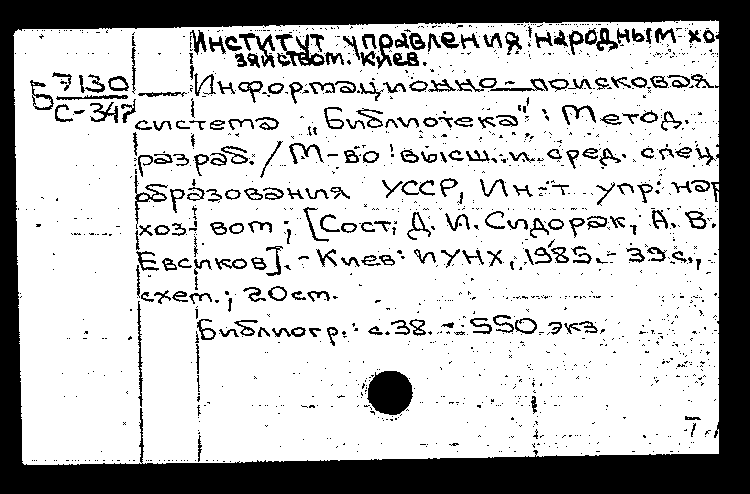 Институт управления народным хо-
зяйством. Киев.
Б 7130
С-347
Информационно-поисковая
система "Библиотека" : Метод.
разраб. / М-во высш. и сред. спец.
образования УССР, Ин-т упр. нар.
хоз-вот ; [Сост. Д. И. Сидорак, А. В.
Евсиков]. - Киев : ИУНХ, 1985. - 39 с.,
схем. ; 20 см.
Библиогр.: с.38. - 550 экз.